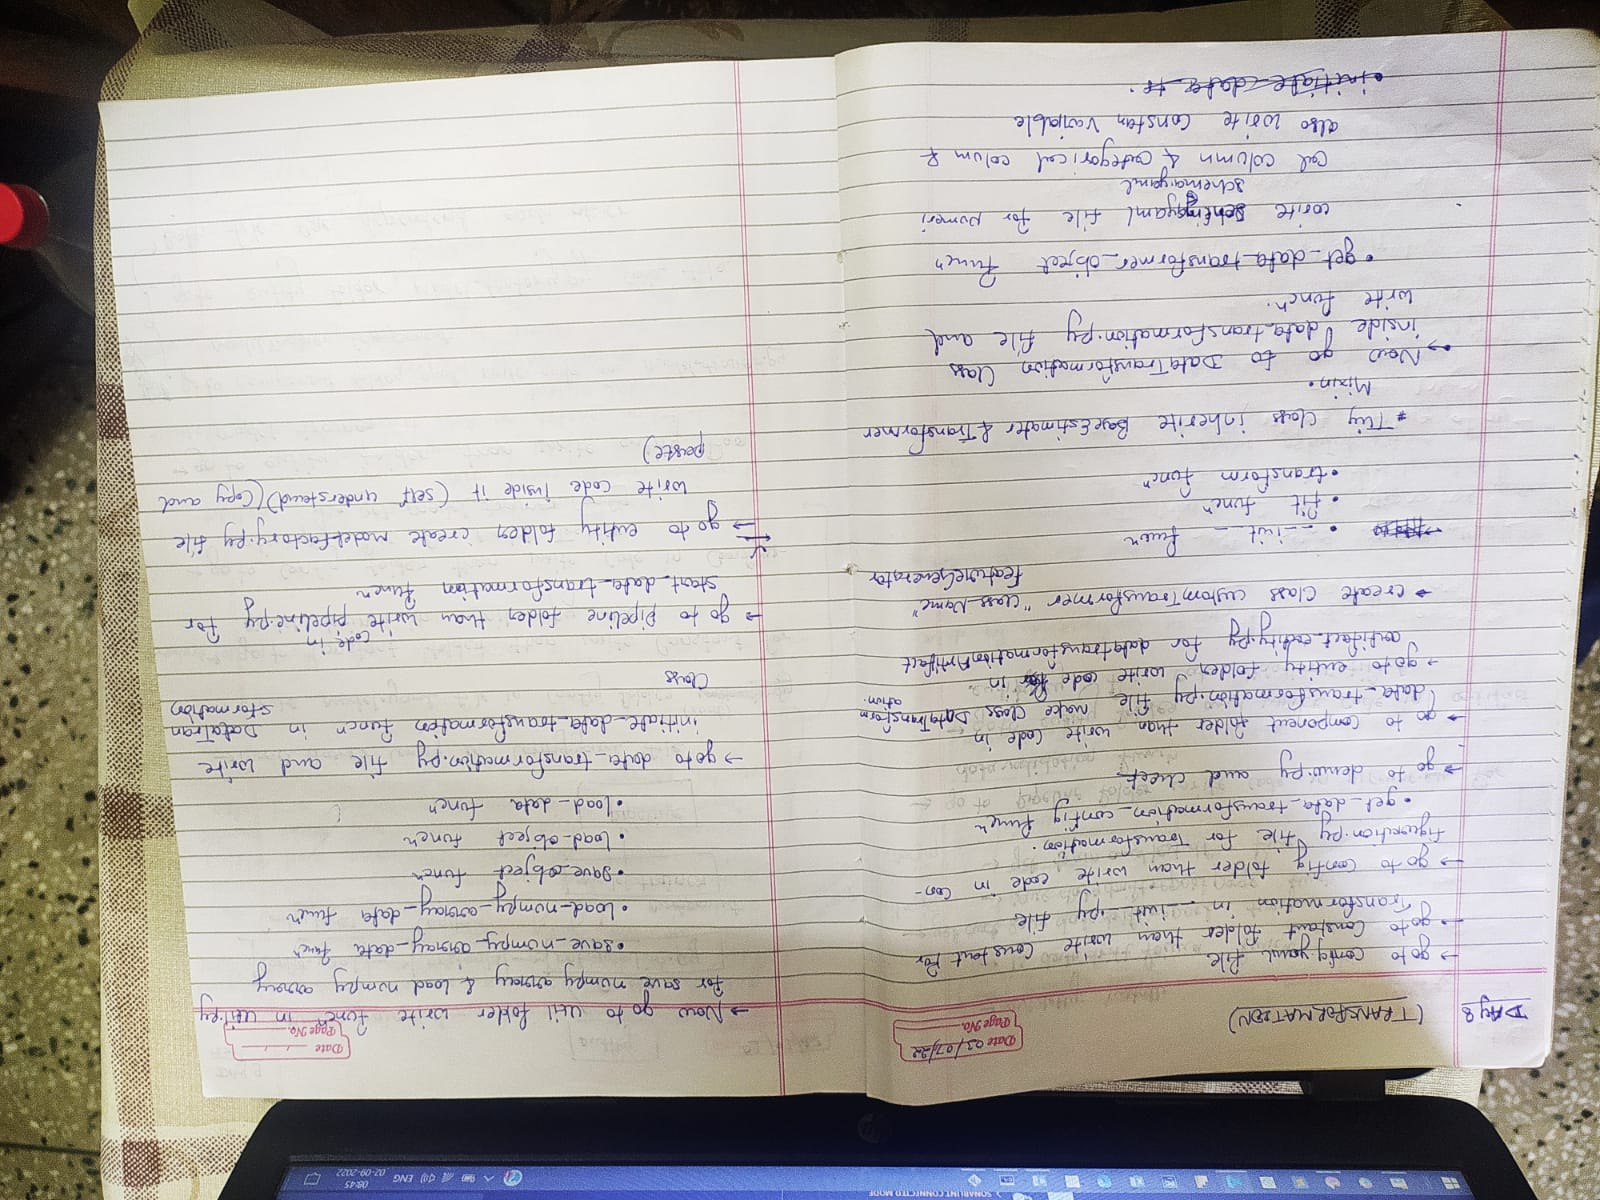 SONARLINT CONNECTED MODE
ENG
08:45
02-09-2022
hp
Date 03/07/22
Page No.
DAY 8 (TRANSFORMATION)
→ go to config.yaml file
→ go to Constant folder than write Constant for
Transformation in __init__.py file
→ go to config folder than write code in Con-
figuration.py file for Transformation.
• get_data_transformation_config funcn
→ go to demo.py and check.
→ go to component folder than write code in
data_transformation.py file make class DataTransform
ation.
→ go to entity folder write code in
artifact_entity.py for datatransformationArtifact
→ create Class customTransformer "Class_Name"
FeatureGenerator
→ • __init__ funcn
• fit funcn
• transform funcn
* This Class inherite BaseEstimater & Transformer
Mixin.
→ Now go to DataTransformation Class
inside data_transformation.py file and
write funcn.
• get_data_transformer_object funcn
write yaml file for Numeri
schema.yaml
cal column & categorical colum &
also write constan variable
• initiate data tr.
Date
Page No.
→ Now go to util folder write funcn in util.py
for save numpy array & load numpy array
• save_numpy_array_data funcn
• load_numpy_array_data funcn
• save_object funcn
• load_object funcn
• load_data funcn
→ go to data_transformation.py file and write
initiate_data_transformation funcn in DataTran
sformation
Class
code in
→ go to pipeline folder than write pipeline.py for
start_data_transformation funcn
→ go to entity folder create modelfactory.py file
write code inside it (self understand) (Copy and
paste)